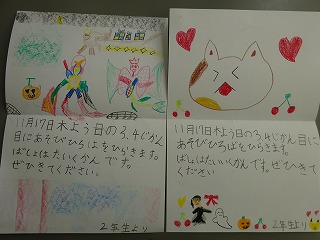 11月17日木よう日の3、4じかん
目にあそびひろばをひらきます。
ばしょはたいくかんです。
ぜひきてください。
2年生より
11月17日木よう日の3、4じかん目に
あそびひろばをひらきます。
ばしょはたいいくかんです。ぜひきて
ください
2年生より